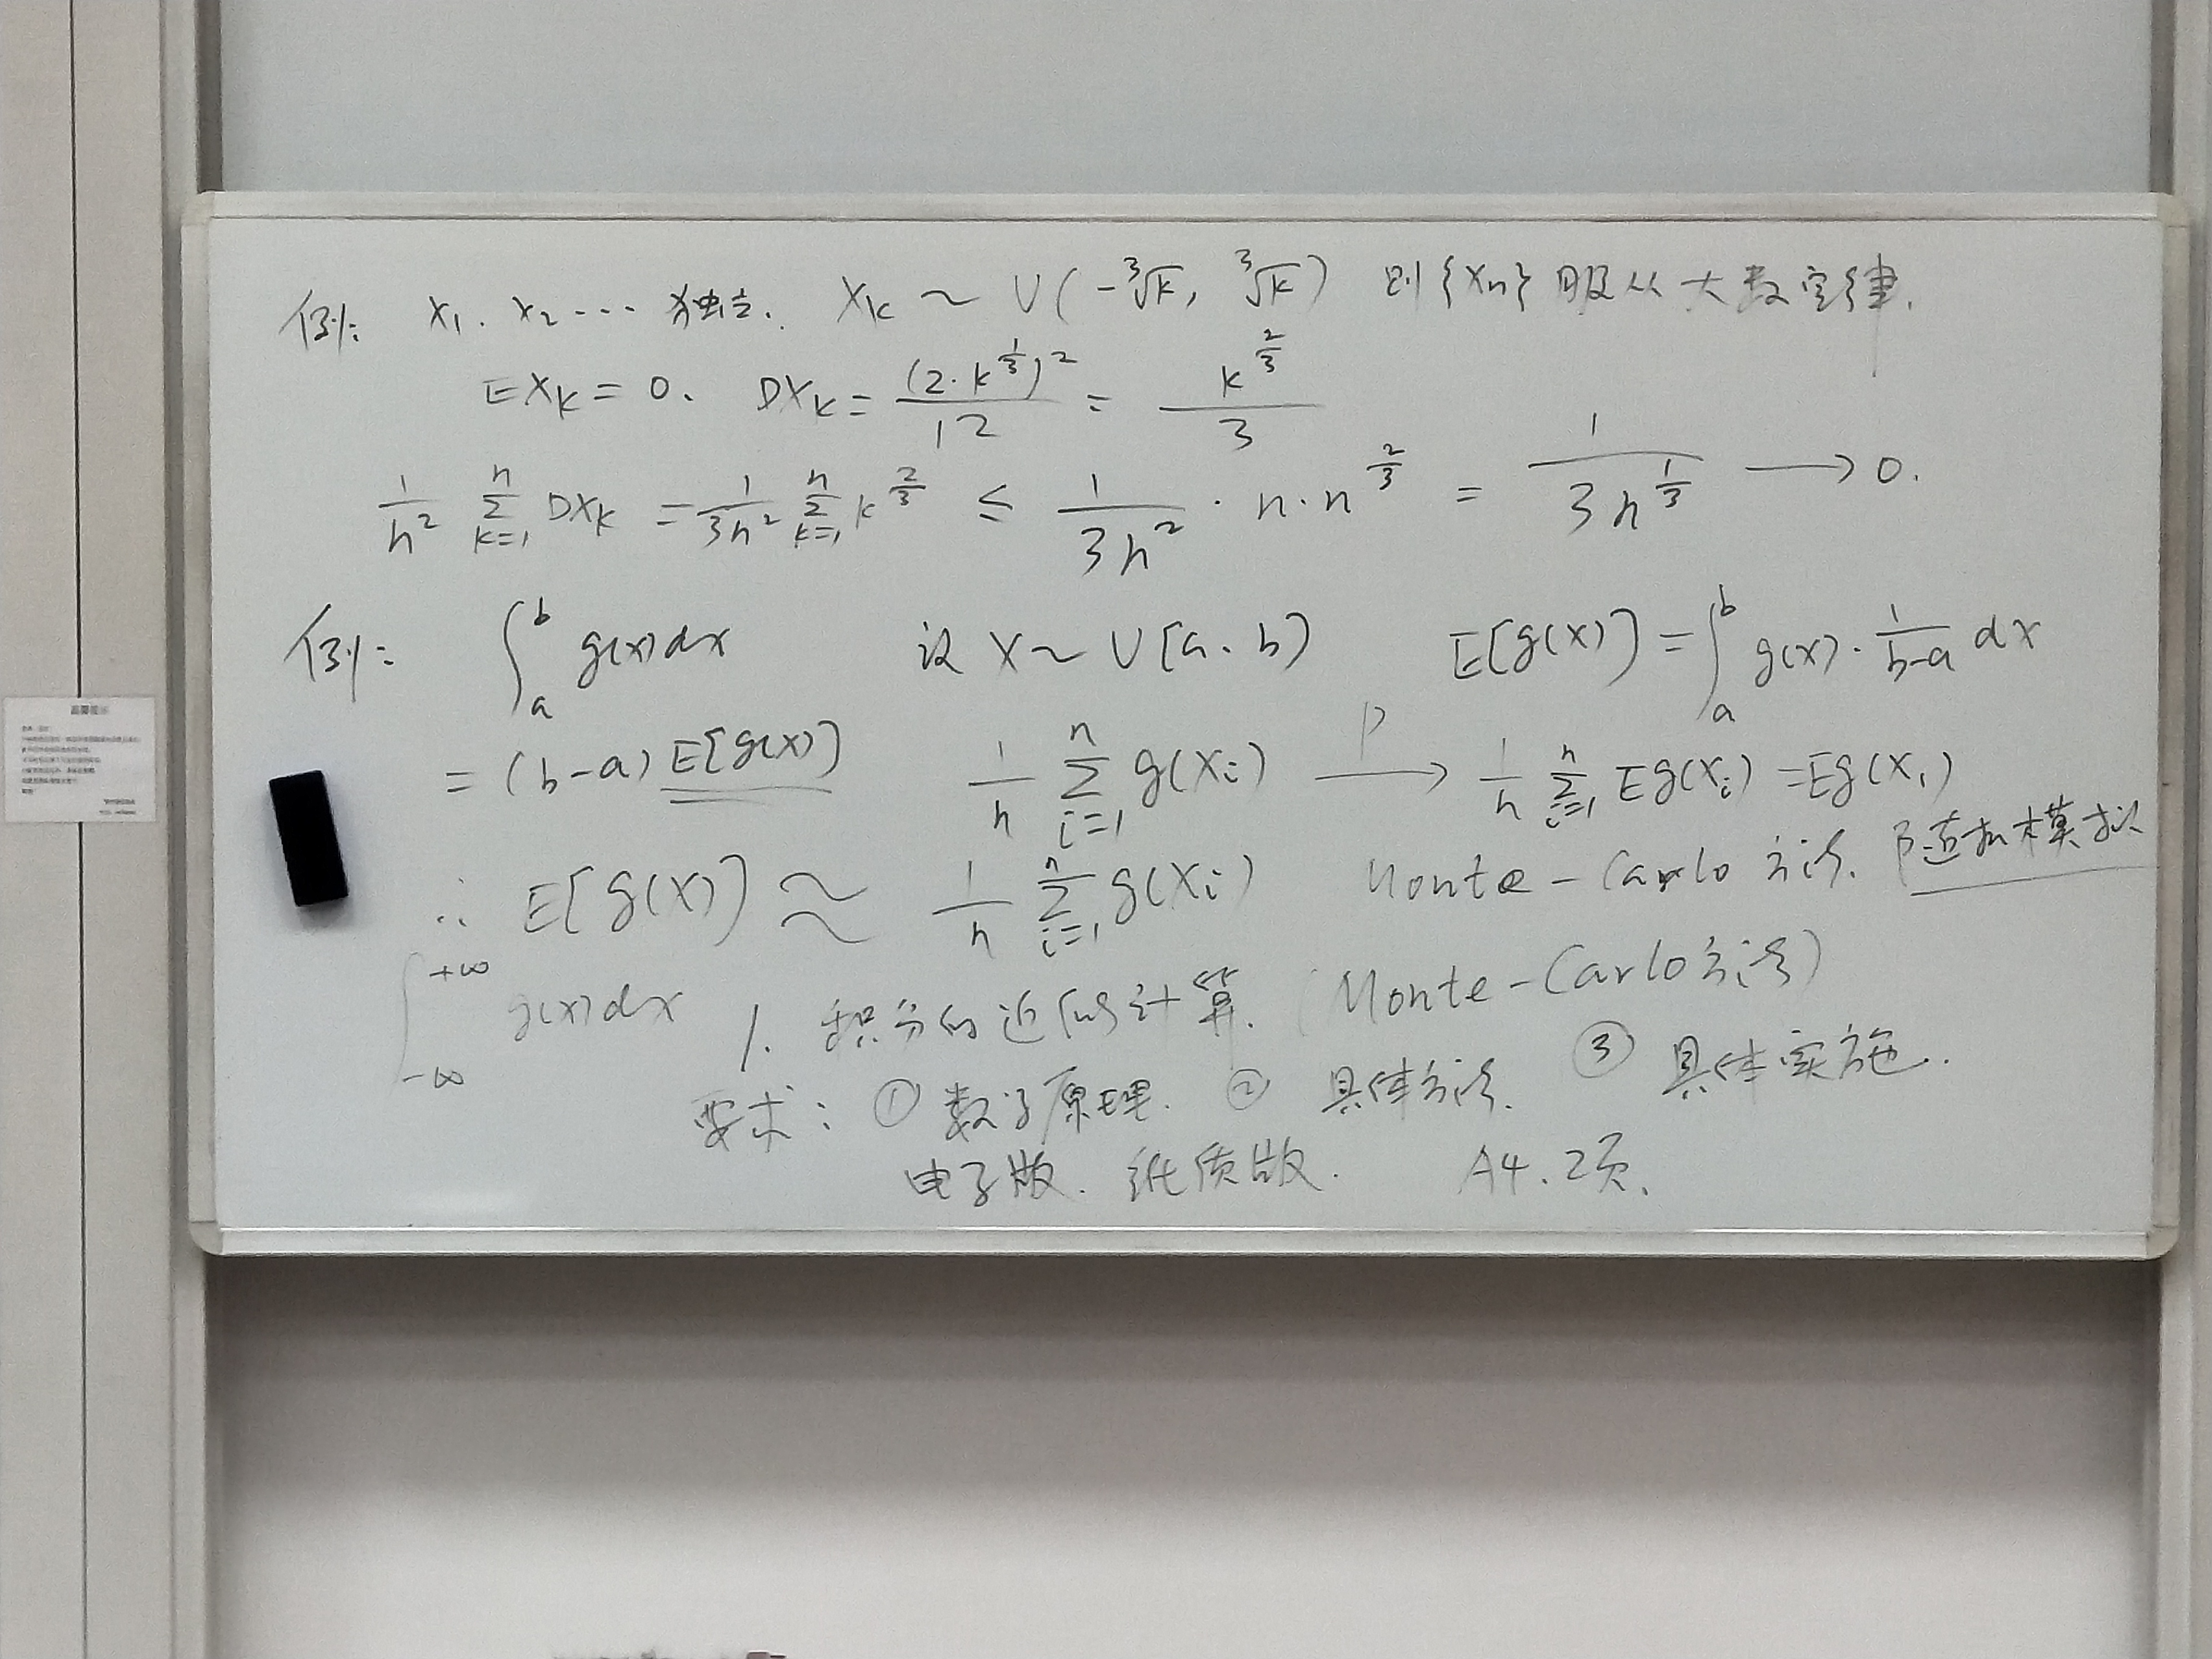 例: X₁. X₂ ··· 独立. X_k ~ U(-∛k, ∛k) 则{X_n}服从大数定律.
EX_k = 0. DX_k = (2·k^{1/3})²/12 = k^{2/3}/3
1/n² Σ_{k=1}^{n} DX_k = 1/(3n²) Σ_{k=1}^{n} k^{2/3} ≤ 1/(3n²) · n·n^{2/3} = 1/(3n^{1/3}) → 0.
例: ∫_a^b g(x)dx 设 X ~ U[a.b) E[g(X)] = ∫_a^b g(x)·1/(b-a) dx
= (b-a) E[g(X)] 1/n Σ_{i=1}^{n} g(X_i) →^P 1/n Σ_{i=1}^{n} Eg(X_i) = Eg(X₁)
∴ E[g(X)] ≈ 1/n Σ_{i=1}^{n} g(X_i) Monte-Carlo方法. 随机模拟
∫_{-∞}^{+∞} g(x)dx 1. 积分的近似计算. (Monte-Carlo方法)
要求: ① 数学原理. ② 具体方法. ③ 具体实施..
电子版. 纸质版. A4. 2页.
温馨提示